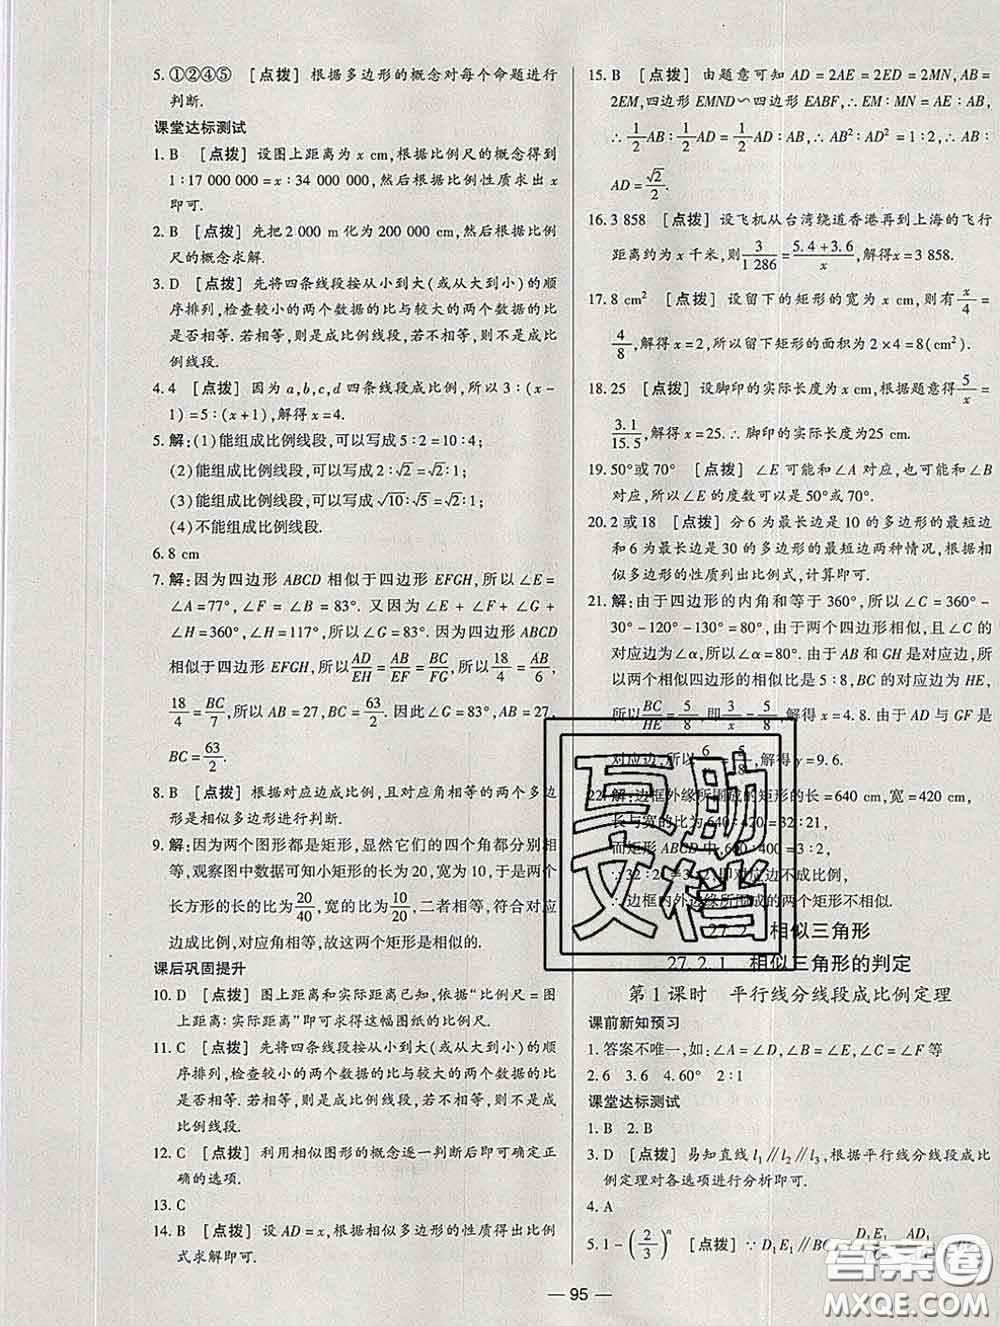 5. ①②④⑤ [点拨] 根据多边形的概念对每个命题进行
判断.
课堂达标测试
1. B [点拨] 设图上距离为 x cm,根据比例尺的概念得到
1∶17 000 000=x∶34 000 000,然后根据比例性质求出 x
即可.
2. B [点拨] 先把2 000 m 化为 200 000 cm,然后根据比例
尺的概念求解.
3. D [点拨] 先将四条线段按从小到大(或从大到小)的顺
序排列,检查较小的两个数据的比与较大的两个数据的比
是否相等. 若相等,则是成比例线段,若不相等,则不是成比
例线段.
4. 4 [点拨] 因为 a,b,c,d 四条线段成比例,所以 3∶(x-
1)=5∶(x+1),解得 x=4.
5. 解:(1)能组成比例线段,可以写成 5∶2=10∶4;
(2)能组成比例线段,可以写成 2∶√2=√2∶1;
(3)能组成比例线段,可以写成 √10∶√5=√2∶1;
(4)不能组成比例线段.
6. 8 cm
7. 解:因为四边形 ABCD 相似于四边形 EFGH,所以∠E=
∠A=77°,∠F=∠B=83°. 又因为∠E+∠F+∠G+
∠H=360°,∠H=117°,所以∠G=83°. 因为四边形 ABCD
相似于四边形 EFGH,所以AD/EH=AB/EF=BC/FG,所以18/4=AB/6,
18/4=BC/7,所以 AB=27,BC=63/2. 因此∠G=83°,AB=27,
BC=63/2.
8. B [点拨] 根据对应边成比例,且对应角相等的两个多边
形是相似多边形进行判断.
9. 解:因为两个图形都是矩形,显然它们的四个角都分别相
等,观察图中数据可知小矩形的长为20,宽为10,于是两个
长方形的长的比为20/40,宽的比为10/20,二者相等,符合对应
边成比例,对应角相等,故这两个矩形是相似的.
课后巩固提升
10. D [点拨] 图上距离和实际距离已知,根据“比例尺=图
上距离∶实际距离”即可求得这幅图纸的比例尺.
11. C [点拨] 先将四条线段按从小到大(或从大到小)的顺
序排列,检查较小的两个数据的比与较大的两个数据的比
是否相等. 若相等,则是成比例线段,若不相等,则不是成比
例线段.
12. C [点拨] 利用相似图形的概念逐一判断后即可确定正
确的选项.
13. C
14. B [点拨] 设 AD=x,根据相似多边形的性质得出比例
式求解即可.
15. B [点拨] 由题意可知 AD=2AE=2ED=2MN,AB=
2EM,四边形 EMND∽四边形 EABF,∴EM∶MN=AE∶AB,
∴1/2AB∶1/2AD=1/2AD∶AB,∴AB²∶AD²=1∶2,∴AB∶
AD=√2/2.
16. 3 858 [点拨] 设飞机从台湾绕道香港再到上海的飞行
距离约为 x 千米,则3/1 286=(5.4+3.6)/x,解得x=3 858.
17. 8 cm² [点拨] 设留下的矩形的宽为 x cm,则有x/4=
4/8,解得 x=2,所以留下矩形的面积为 2×4=8(cm²).
18. 25 [点拨] 设脚印的实际长度为 x cm,根据题意得5/x=
3.1/15.5,解得 x=25. ∴脚印的实际长度为25 cm.
19. 50°或70° [点拨] ∠E 可能和∠A 对应,也可能和∠B
对应,所以∠E 的度数可以是 50°或 70°.
20. 2 或 18 [点拨] 分 6 为最大边是 10 的多边形的最短边
和 6 为最长边是 30 的多边形的最短边两种情况,根据相
似多边形的性质列出比例式,计算即可.
21. 解:由于四边形的内角和等于 360°,所以∠C=360°-
30°-120°-130°=80°,由于两个四边形相似,且∠C 的
对应边为∠α,所以∠α=80°. 由于 AB 和 GH 是对应边,所
以两个相似四边形的相似比是 5∶8,BC 的对应边为 HE,
所以BC/HE=5/8,即3/x=5/8,解得 x=4.8. 由于 AD 与 GF 是
对应边,所以6/ =5/8,解得 y=9.6.
22. 解:边框外缘所围成的矩形的长=640 cm,宽=420 cm,
长与宽的比为 640∶420=32∶21,
而矩形 ABCD 中 600∶400=3∶2,
∵32∶21≠3∶2,即对应边不成比例,
∴边框内外边缘所围成的两个矩形不相似.
27.2 相似三角形
27.2.1 相似三角形的判定
第 1 课时 平行线分线段成比例定理
课前新知预习
1. 答案不唯一,如:∠A=∠D,∠B=∠E,∠C=∠F 等
2. 6 3. 6 4. 60° 2∶1
课堂达标测试
1. B 2. B
3. D [点拨] 易知直线 l₁∥l₂∥l₃,根据平行线分线段成比
例定理对各选项进行分析即可.
4. A
5. 1-(2/3)ⁿ [点拨] ∵D₁E₁∥BC, D₁E₁ AD₁
— 95 —
互助文档
答案圈
MXQE.COM